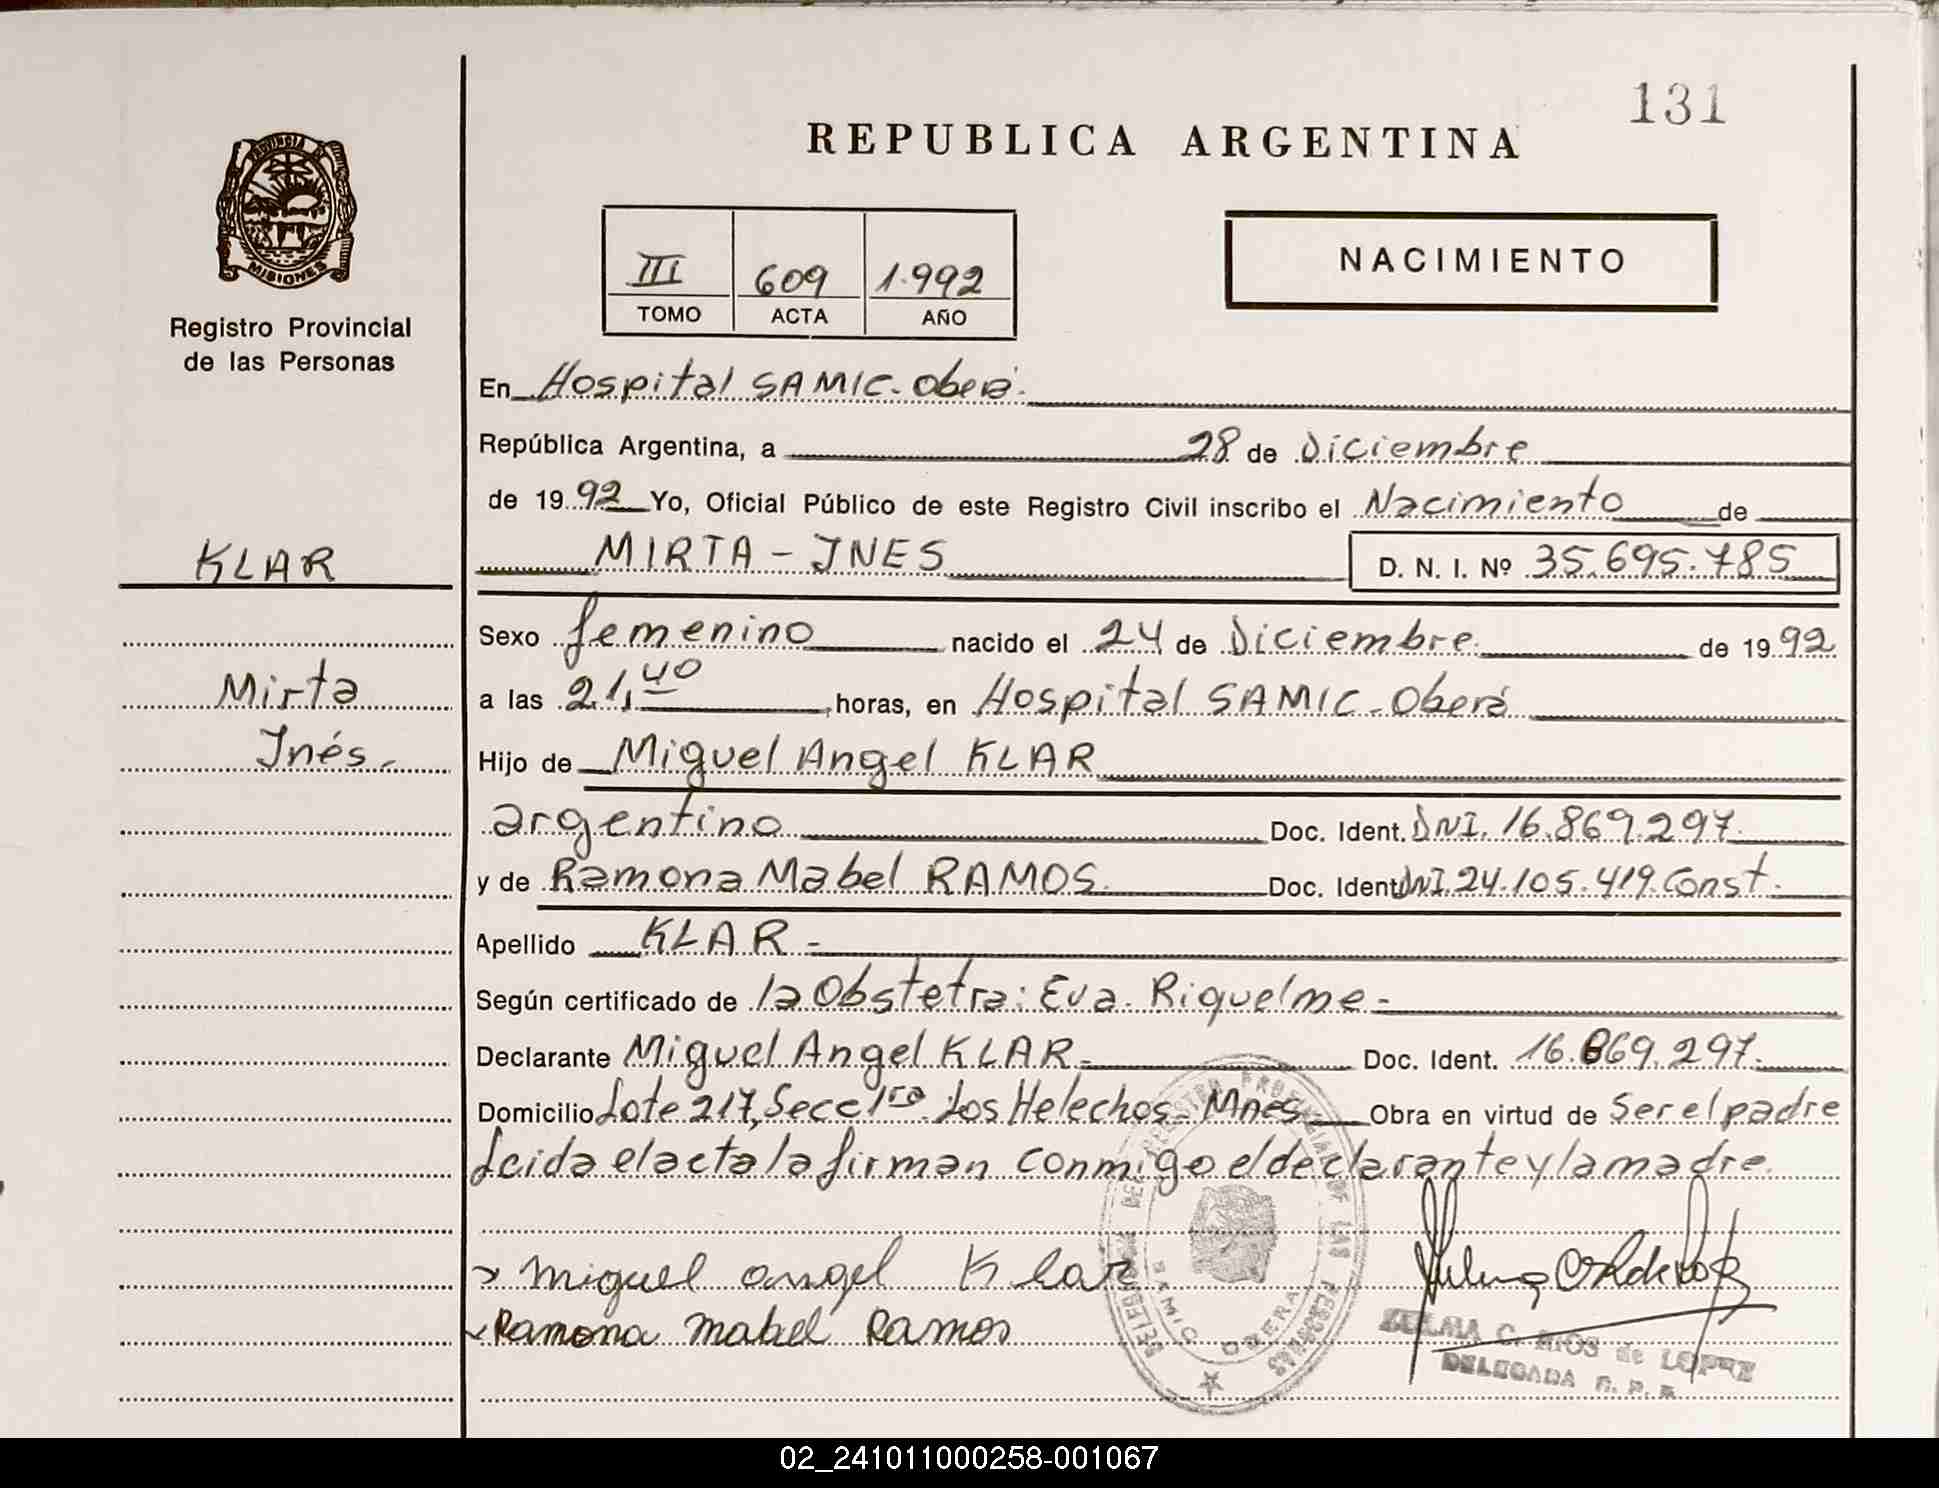 131
REPUBLICA ARGENTINA
PROVINCIA DE
MISIONES
Registro Provincial
de las Personas
III 609 1.992
TOMO ACTA AÑO
NACIMIENTO
En Hospital SAMIC - Oberá.
República Argentina, a 28 de Diciembre
de 1992 Yo, Oficial Público de este Registro Civil inscribo el Nacimiento de
KLAR
MIRTA - INES D. N. I. Nº 35.695.785
Sexo femenino nacido el 24 de Diciembre de 1992
Mirta
a las 21,40 horas, en Hospital SAMIC - Oberá
Inés.-
Hijo de Miguel Angel KLAR
argentino Doc. Ident. DNI. 16.869.297.
y de Ramona Mabel RAMOS. Doc. Ident. DNI. 24.105.419. Const.
Apellido KLAR -
Según certificado de la Obstetra: Eva Riquelme -
Declarante Miguel Angel KLAR - Doc. Ident. 16.869.297.
Domicilio Lote 217, Secc 1ra. Los Helechos - Mnes Obra en virtud de Ser el padre
Leida el acta la firman conmigo el declarante y la madre.
miguel angel Klar
Ramona mabel Ramos
REGISTRO PROVINCIAL DE LAS PERSONAS
OBERA
C. RIOS de LOPEZ
DELEGADA R. P. P.
02_241011000258-001067